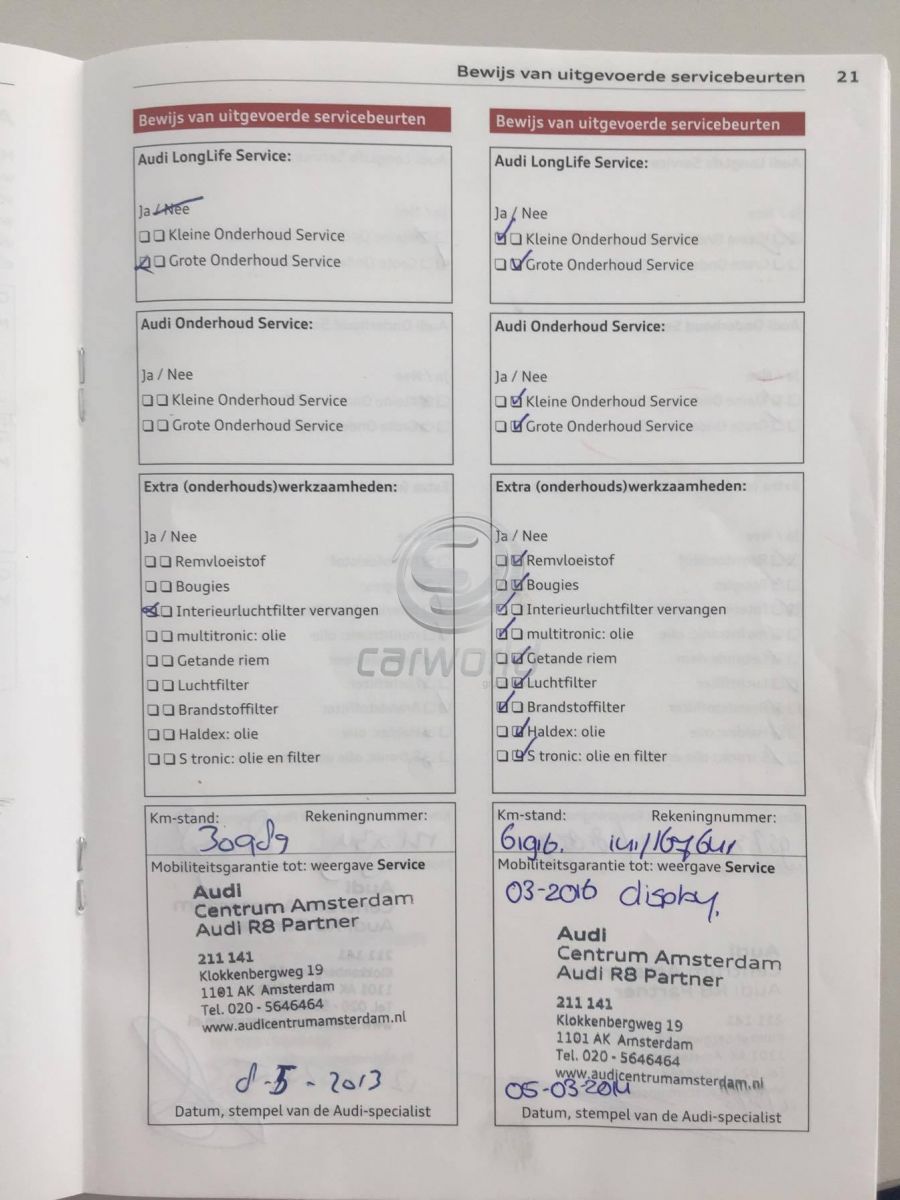 Bewijs van uitgevoerde servicebeurten 21
Bewijs van uitgevoerde servicebeurten
Audi LongLife Service:
Ja / Nee
Kleine Onderhoud Service
Grote Onderhoud Service
Audi Onderhoud Service:
Ja / Nee
Kleine Onderhoud Service
Grote Onderhoud Service
Extra (onderhouds)werkzaamheden:
Ja / Nee
Remvloeistof
Bougies
Interieurluchtfilter vervangen
multitronic: olie
Getande riem
Luchtfilter
Brandstoffilter
Haldex: olie
S tronic: olie en filter
Km-stand: Rekeningnummer:
30989
Mobiliteitsgarantie tot: weergave Service
Audi
Centrum Amsterdam
Audi R8 Partner
211 141
Klokkenbergweg 19
1101 AK Amsterdam
Tel. 020 - 5646464
www.audicentrumamsterdam.nl
8-5-2013
Datum, stempel van de Audi-specialist
Bewijs van uitgevoerde servicebeurten
Audi LongLife Service:
Ja / Nee
Kleine Onderhoud Service
Grote Onderhoud Service
Audi Onderhoud Service:
Ja / Nee
Kleine Onderhoud Service
Grote Onderhoud Service
Extra (onderhouds)werkzaamheden:
Ja / Nee
Remvloeistof
Bougies
Interieurluchtfilter vervangen
multitronic: olie
Getande riem
Luchtfilter
Brandstoffilter
Haldex: olie
S tronic: olie en filter
Km-stand: Rekeningnummer:
Mobiliteitsgarantie tot: weergave Service
03-2016 display.
Audi
Centrum Amsterdam
Audi R8 Partner
211 141
Klokkenbergweg 19
1101 AK Amsterdam
Tel. 020 - 5646464
www.audicentrumamsterdam.nl
05-03-2014
Datum, stempel van de Audi-specialist
carworld